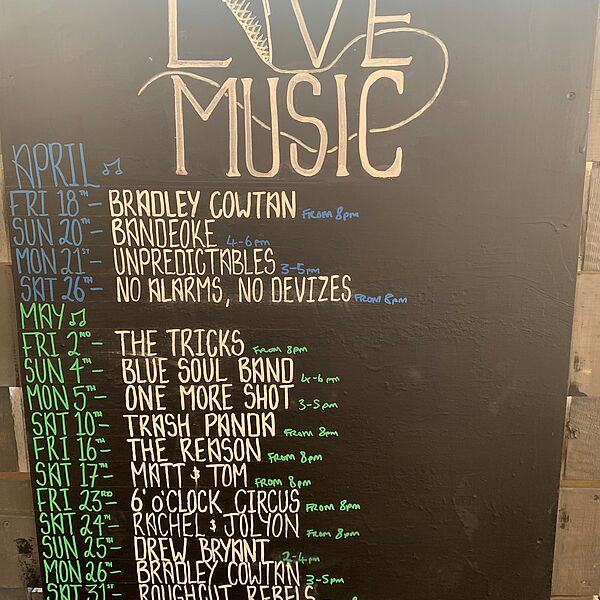 LIVE
MUSIC
APRIL
FRI 18TH - BRADLEY COWTAN FROM 8pm
SUN 20TH - BANDEOKE 4-6pm
MON 21ST - UNPREDICTABLES 3-5pm
SAT 26TH - NO ALARMS, NO DEVIZES FROM 8pm
MAY
FRI 2ND - THE TRICKS FROM 8pm
SUN 4TH - BLUE SOUL BAND 4-6pm
MON 5TH - ONE MORE SHOT 3-5pm
SAT 10TH - TRASH PANDA FROM 8pm
FRI 16TH - THE REASON FROM 8pm
SAT 17TH - MATT & TOM FROM 8pm
FRI 23RD - 6'O'CLOCK CIRCUS FROM 8pm
SAT 24TH - RACHEL & JOLYON FROM 8pm
SUN 25TH - DREW BRYANT 2-4pm
MON 26TH - BRADLEY COWTAN 3-5pm
SAT 31ST - ROUGHCUT REBELS